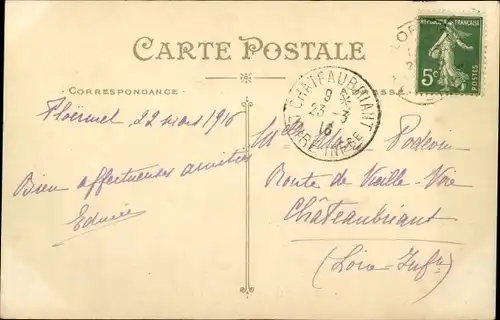 CARTE POSTALE
CORRESPONDANCE
Ploërmel 22 mars 1916
Bien affectueuses amitiés
Edmée
REPUBLIQUE FRANÇAISE
5c
POSTES
CHATEAUBRIANT
8
23 - 3
16
LOIRE INFRE
Podevin
Route de Vieille-Voie
Châteaubriant
(Loire-Infre)